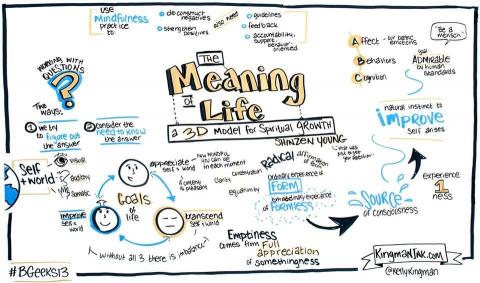 use
Mindfulness
practice
to
deconstruct
negatives
strengthen
positives
also need
guidelines
feedback
accountability,
support,
behavior
oriented
Affect - our basic
emotions
Behaviors
Cognition
goal:
ADMIRABLE
by human
standards
"Be a
mensch"
WORKING WITH
QUESTIONS
?
The
ways:
1 we try
to figure out
the answer
2 consider the
need to know
the answer
The
Meaning
of
Life
a 3D Model for Spiritual GROWTH
SHINZEN YOUNG
natural instinct to
improve
self arises
Self
+ world
visual
auditory
somatic
appreciate
self + world
how mindful
you can be
in each moment
concentration
clarity
equanimity
Goals
of
life
improve
self + world
transcend
self + world
without all 3 there is imbalance
Radical affirmation
of
ordinary experience of
FORM
extraordinary experience
of FORMLESS
SOURCE
of consciousness
experience
1
ness
Emptiness
comes from Full
appreciation
of somethingness
#BGeeks13
KINGMANINK.com
@kellykingman